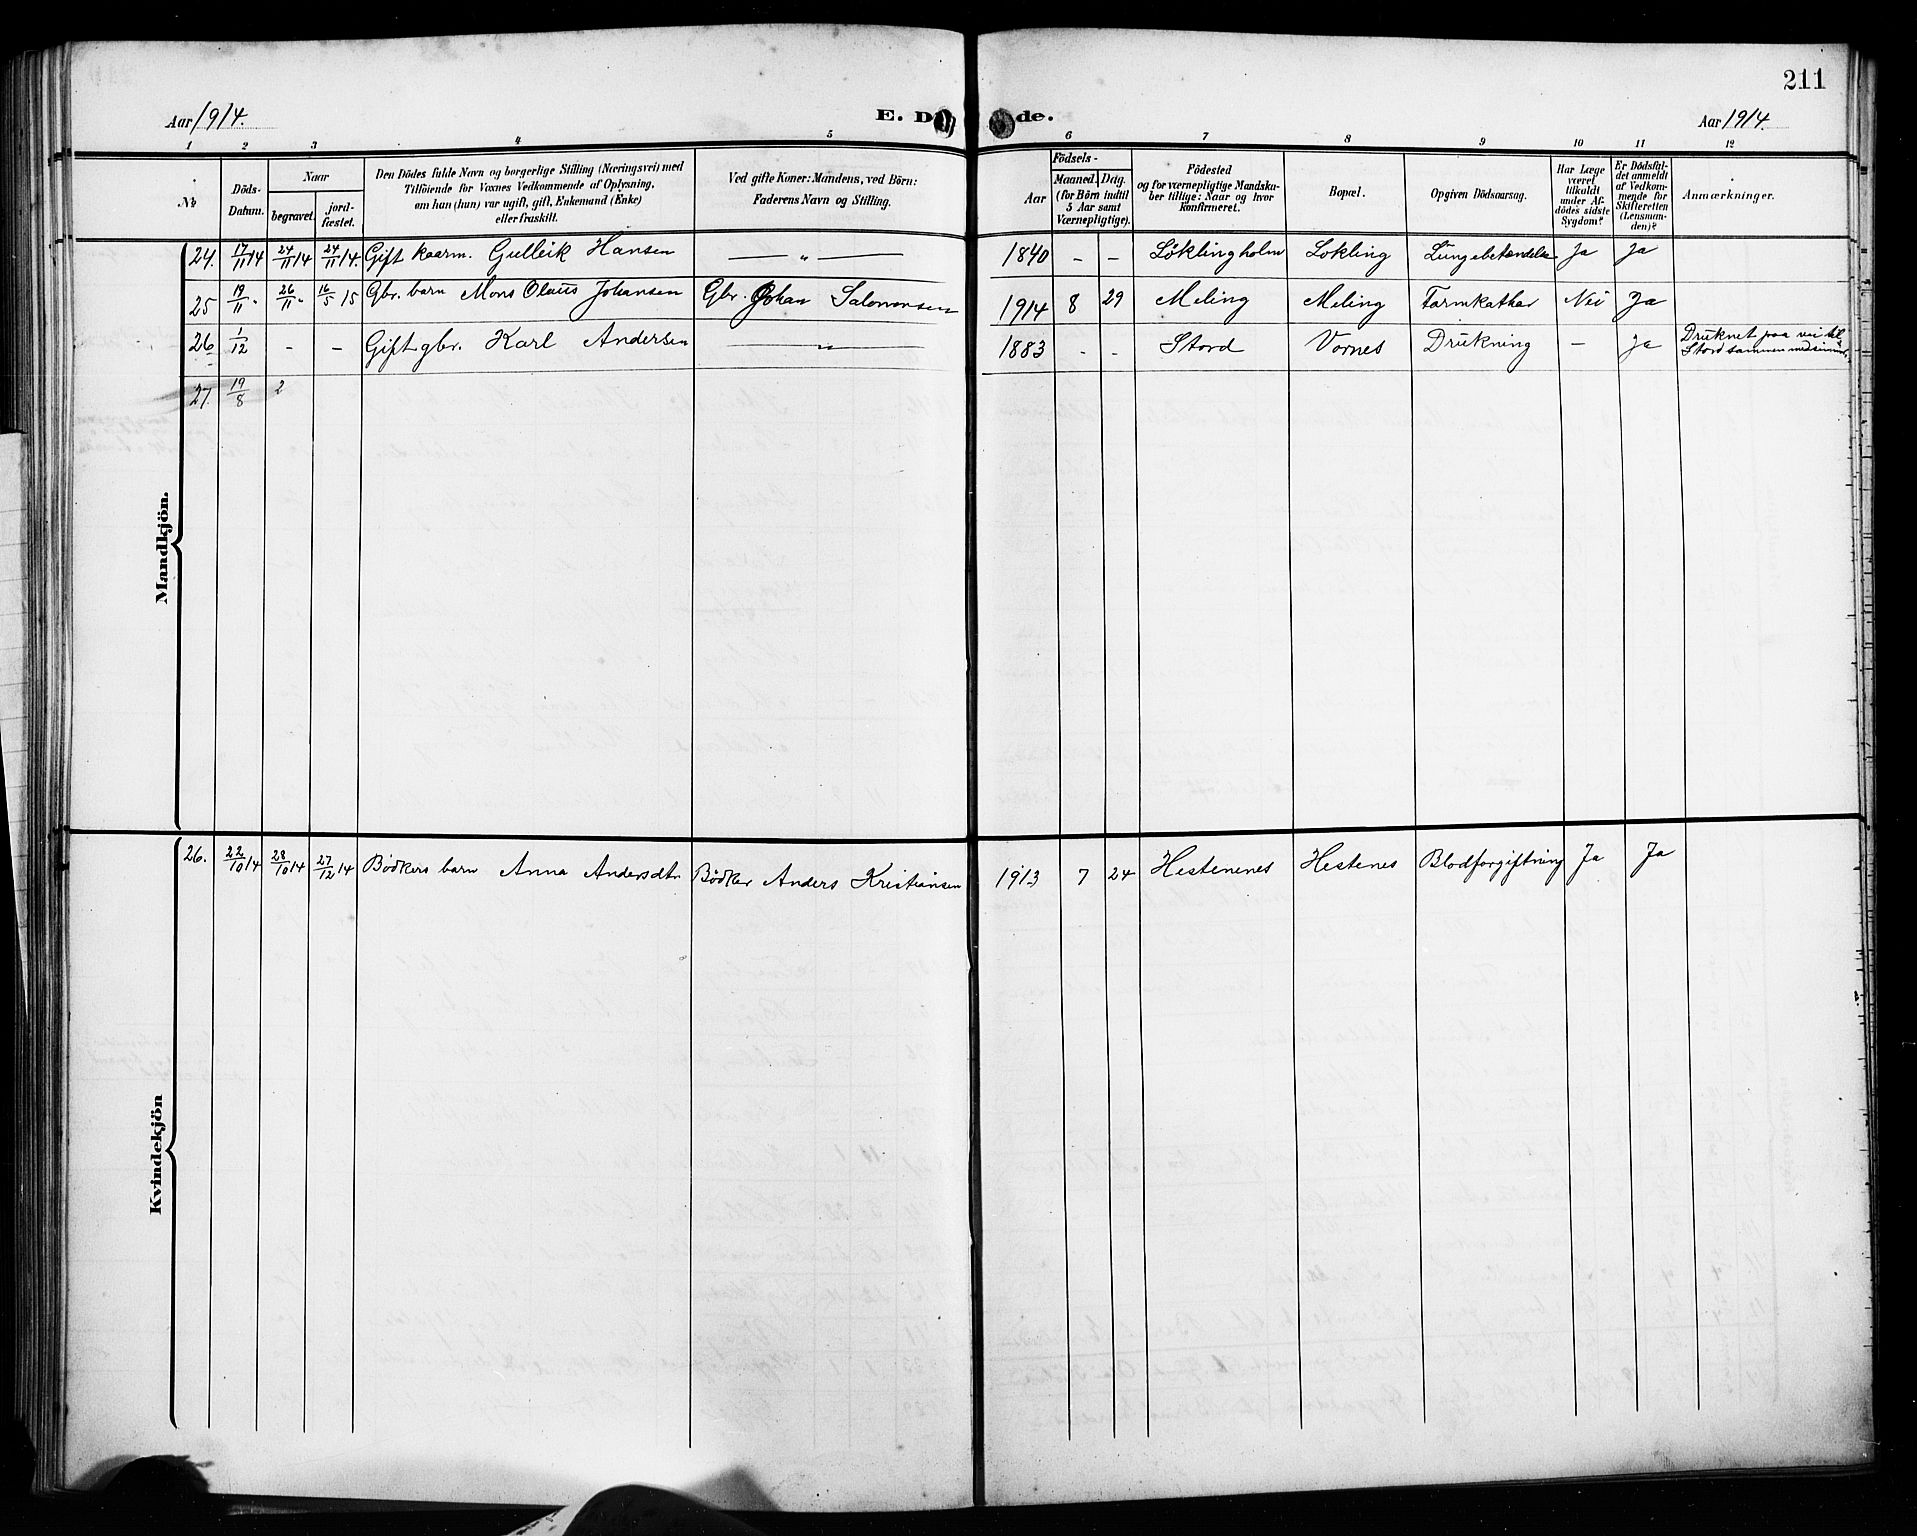 211
Aar 1914.
E. Döde.
Aar 1914.
1 2 3 4 5 6 7 8 9 10 11 12
No
Döds-Datum.
Naar
begravet.
jord-fæstet.
Den Dödes fulde Navn og borgerlige Stilling (Næringsvei) med
Tilföiende for Voxnes Vedkommende af Oplysning,
om han (hun) var ugift, gift, Enkemand (Enke)
eller fraskilt.
Ved gifte Koner: Mandens, ved Börn:
Faderens Navn og Stilling.
Födsels-
Aar
Maaned. Dag.
(for Börn indtil
5 Aar samt
Værnepligtige).
Födested
og for værnepligtige Mandska-
ber tillige: Naar og hvor
konfirmeret.
Bopæl.
Opgiven Dödsaarsag.
Har Læge
været
tilkaldt
under Af-
dödes sidste
Sygdom?
Er Dödsfal-
det anmeldt
af Vedkom-
mende for
Skifteretten
(Lensman-
den)?
Anmærkninger.
Mandkjön.
24. 17/11 14 24/11 14 24/11 14. Gift kaarm. Gulleik Hansen — " — 1840 - - Løklingholm Løkling Lungebetændelse Ja Ja
25 19/11 " 26/11 " 16/5 15 Gbr. barn Mons Olaus Johansen Gbr. Johan Salomonsen 1914 8 29 Meling Meling Tarmkathar Nei Ja
26 1/12 - - Gift gbr. Karl Andersen — " — 1883 - - Stord Vornes Drukning — Ja Druknet paa vei til
Stord sammen med
27. 19/8 2
Kvindekjön
26. 22/10 14 28/10 14 27/12 14 Bødkers barn Anna Andersdtr Bødker Anders Kristiansen 1913 7 24 Hestenenes Hestenes Blodforgiftning Ja Ja